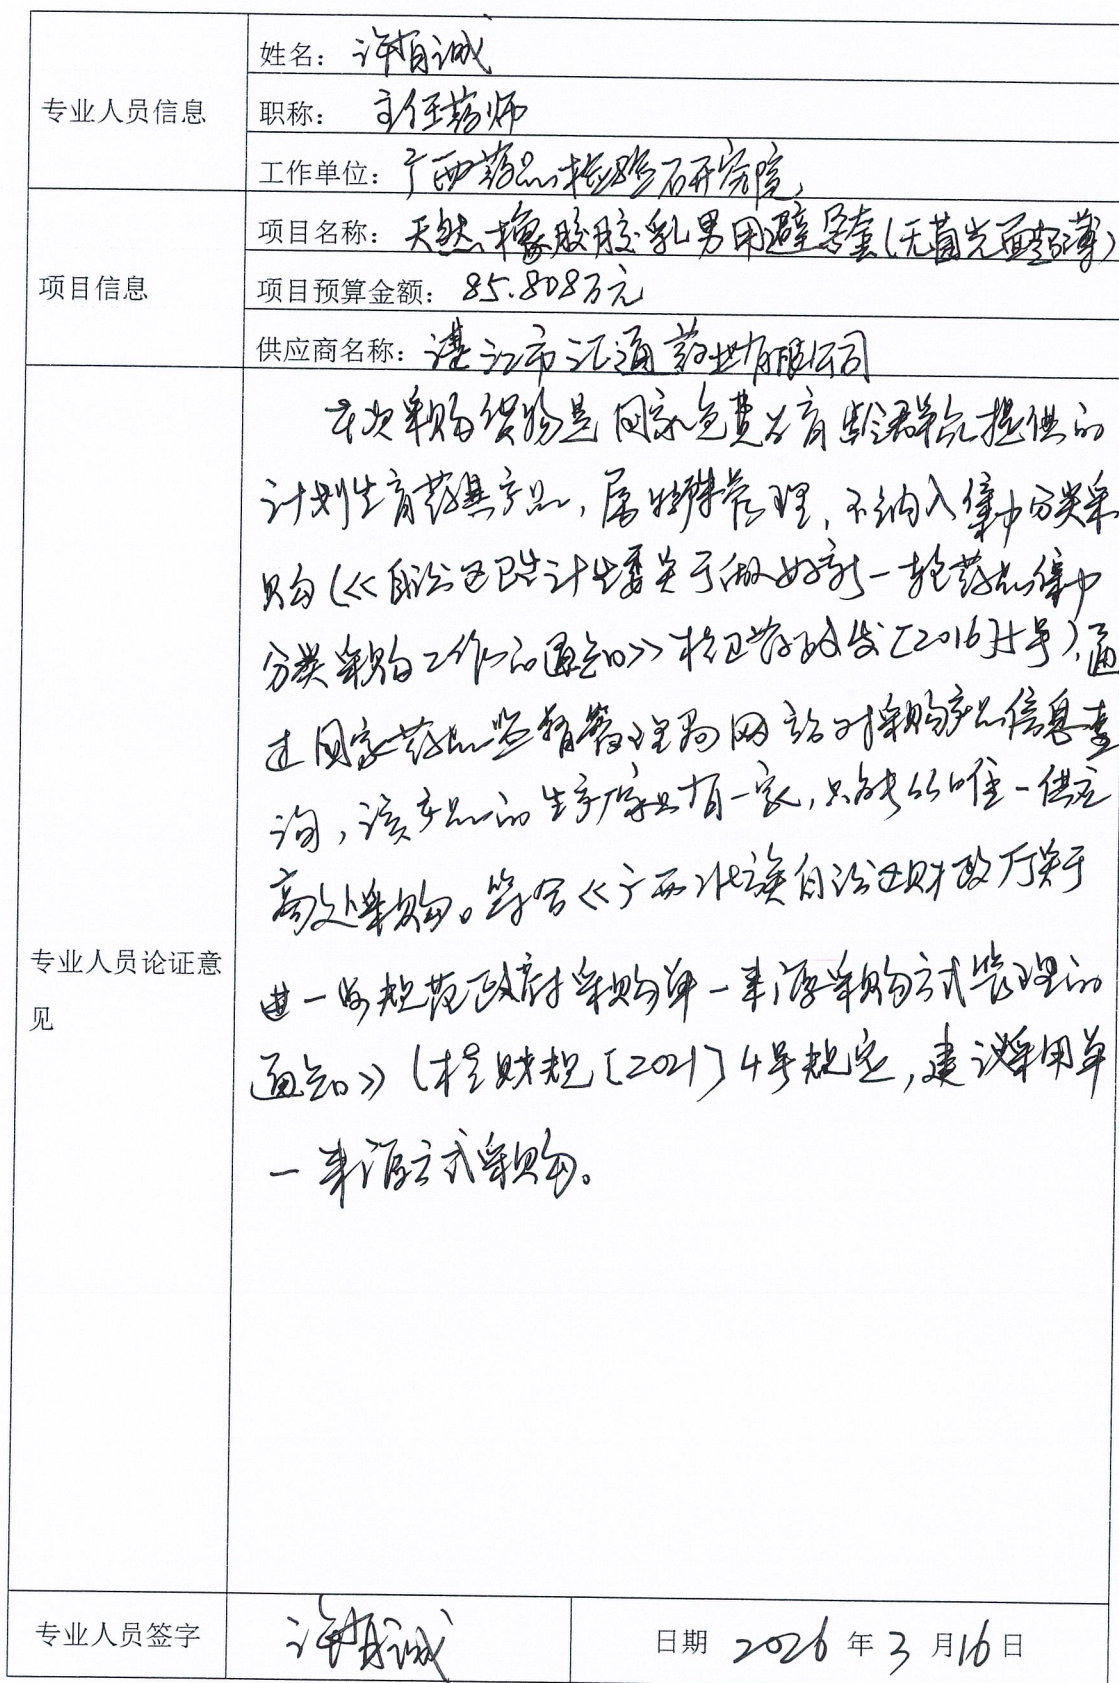 专业人员信息
姓名：许有诚
职称：主任药师
工作单位：广西药品检验研究院
项目信息
项目名称：天然橡胶胶乳男用避孕套(无菌光面超薄)
项目预算金额：85.808万元
供应商名称：湛江市汇通药业有限公司
专业人员论证意
见
本次采购货物是国家免费为育龄群众提供的
计划生育药具产品，属特殊管理，不纳入集中分类采
购(《自治区卫生计生委关于做好新一轮药品集中
分类采购工作的通知》桂卫药政发〔2016〕5号),通
过国家药品监督管理局网站对采购产品信息查
询，该产品的生产厂家只有一家，只能从唯一供应
商处采购。符合《广西壮族自治区财政厅关于
进一步规范政府采购单一来源采购方式管理的
通知》(桂财规〔2021〕4号规定，建议采用单
一来源方式采购。
专业人员签字
许有诚
日期 2026 年 3 月 16 日